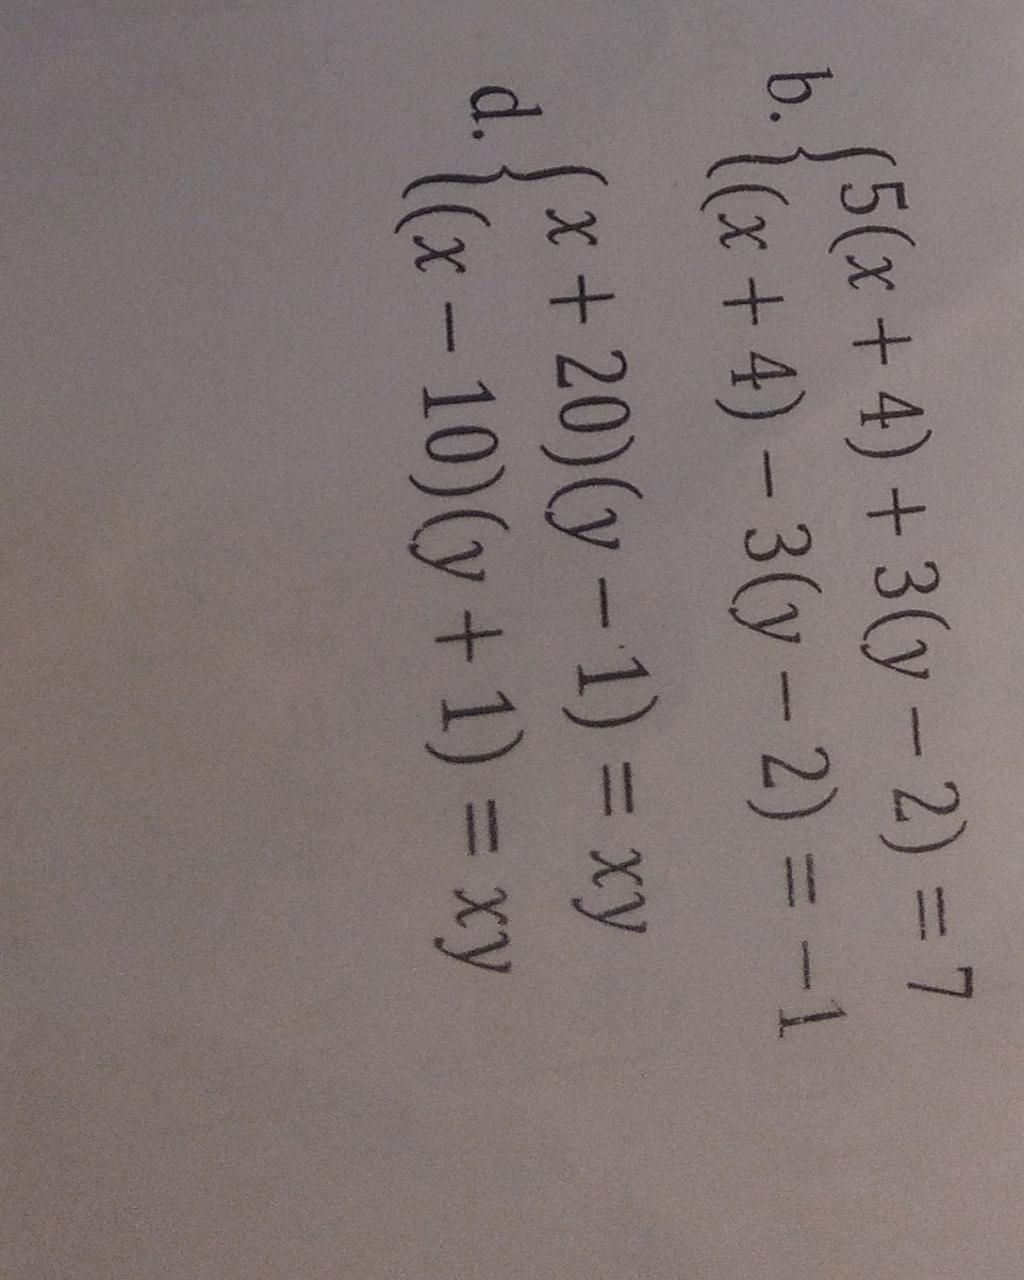 b. {5(x + 4) + 3(y − 2) = 7
(x + 4) − 3(y − 2) = −1
d. {x + 20)(y − 1) = xy
(x − 10)(y + 1) = xy